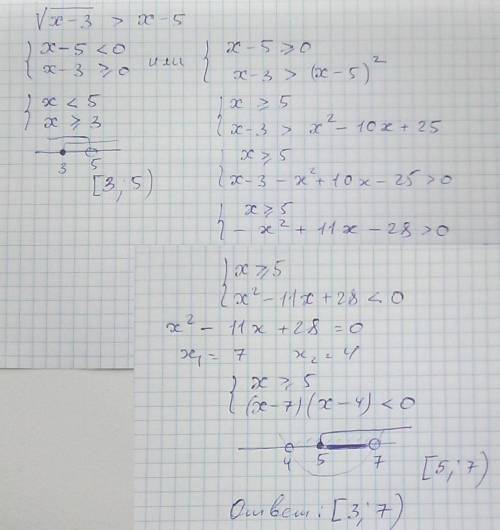 √(x-3) > x-5
{ x-5 < 0
x-3 ⩾ 0
или
{ x-5 ⩾ 0
x-3 > (x-5)²
{ x < 5
x ⩾ 3
3 5
[3; 5)
{ x ⩾ 5
x-3 > x² - 10x + 25
{ x ⩾ 5
x-3-x²+10x-25 > 0
{ x ⩾ 5
-x² + 11x - 28 > 0
{ x ⩾ 5
x² - 11x + 28 < 0
x² - 11x + 28 = 0
x₁ = 7 x₂ = 4
{ x ⩾ 5
(x-7)(x-4) < 0
4 5 7
[5; 7)
Ответ: [3; 7)